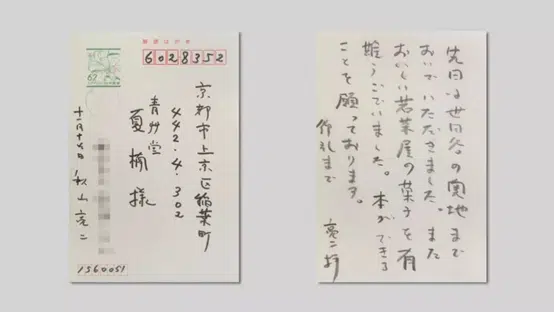 郵便はがき
62
6028352
京都市上京区稲葉町
442.4.302
青艸堂
夏楠様
十一月十七日 秋山亮二
1560051
先日は世田谷の奥地まで
おいでいただきました。また
おいしい若菜屋の菓子を有
難うございました。本ができる
ことを願っております。
御礼まで
亮二拝